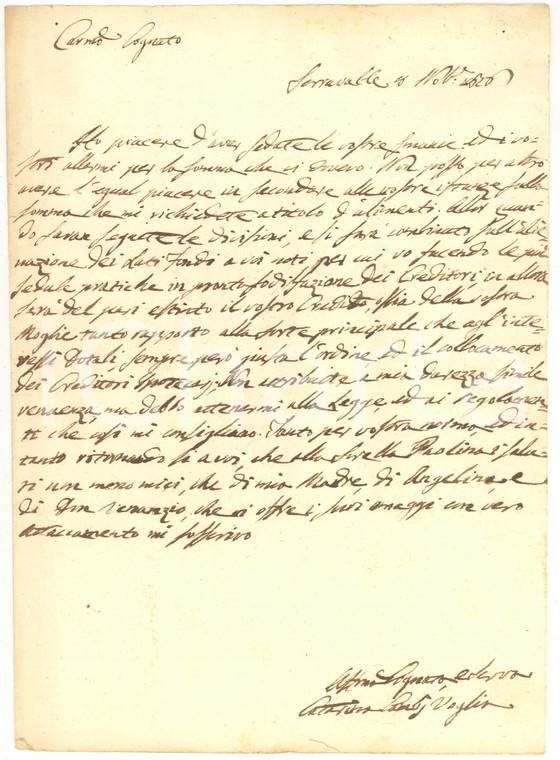 Carmo Cognato
Serravalle 8 Nobr. 1826
Ho piacere d'aver sedate le vostre smanie, ed i vo-
stri allarmi per la somma che vi devo. Non posso per altro
avere l'egual piacere in secondare alle vostre istanze sulla
somma che mi richiedete a titolo d'alimenti. Allor quan-
do saran seguite le divisioni, e si sarà combinato sull'alie-
nazione dei Latifondi a voi noti per cui vo facendo le più
sedule pratiche in pronta sodisfazione dei Creditori, in allora
sarà del pari estinto il vostro Credito, ossia della vostra
Moglie tanto rapporto alla sorte principale che agl'inte-
ressi dotali sempre però giusta l'ordine, ed il collocamento
dei Creditori Ipotecarj. Non attribuite a mia durezza simile
, ma debbo attenermi alla Legge, ed ai regolamen-
ti che così mi consigliano. Tanto per vostra norma, ed in-
tanto ritornando sì a voi, che alla sorella Paolina i salu-
ti non meno miei, che di mia Madre, di Angelina, e
di Don Venanzio, che vi offre i suoi omaggi con vero
attaccamento mi soscrivo
Affma Cognata, e Serva
Catarina Voglia